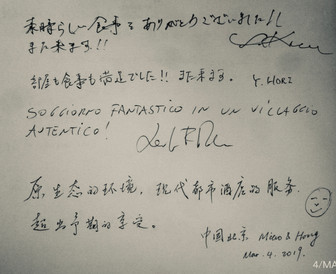 素晴らしい食事をありがとうございました!!
また来ます!!
部屋も食事も満足でした!! また来ます。 Y. HORI
SOGGIORNO FANTASTICO IN UN VILLAGGIO
AUTENTICO!
原生态的环境，现代都市酒店的服务.
超出予期的享受。
中国北京 Miao & Hong
Mar. 4. 2019.
4/MA